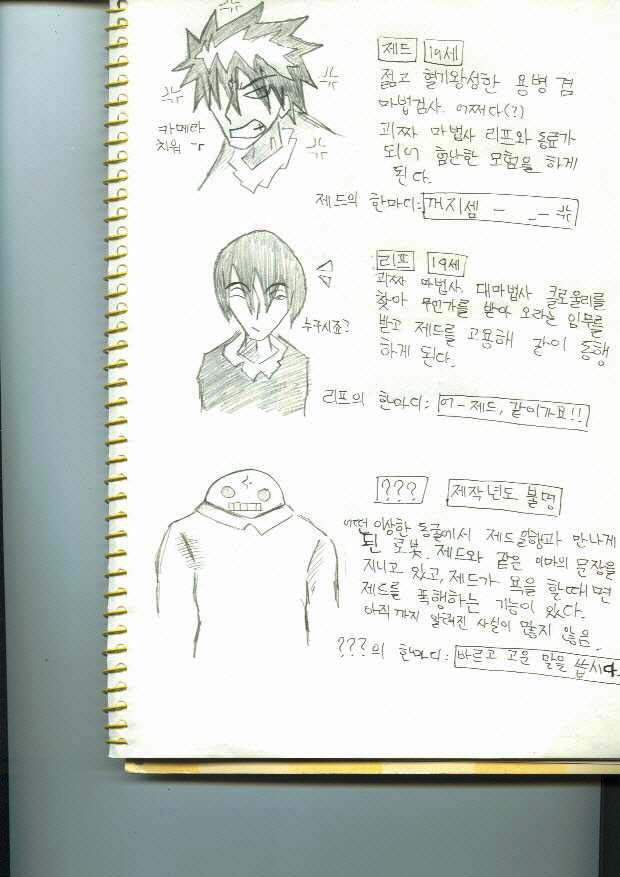 제드 19세
젊고 혈기왕성한 용병 겸
마법검사. 어쩌다(?)
괴짜 마법사 리프와 동료가
되어 험난한 모험을 하게
된다.
카메라
치워
제드의 한마디: 꺼지셈 - _-
리프 19세
괴짜 마법사. 대마법사 클로울리를
찾아 무언가를 받아 오라는 임무를
받고 제드를 고용해 같이 동행
하게 된다.
누구시죠?
리프의 한마디: 어-제드, 같이가요!!
??? 제작년도 불명
어떤 이상한 동굴에서 제드일행과 만나게
된 로봇. 제드와 같은 이마의 문장을
지니고 있고, 제드가 욕을 할때면
제드를 폭행하는 기능이 있다.
아직까지 알려진 사실이 많지 않음.
???의 한마디: 바르고 고운 말을 씁시다.